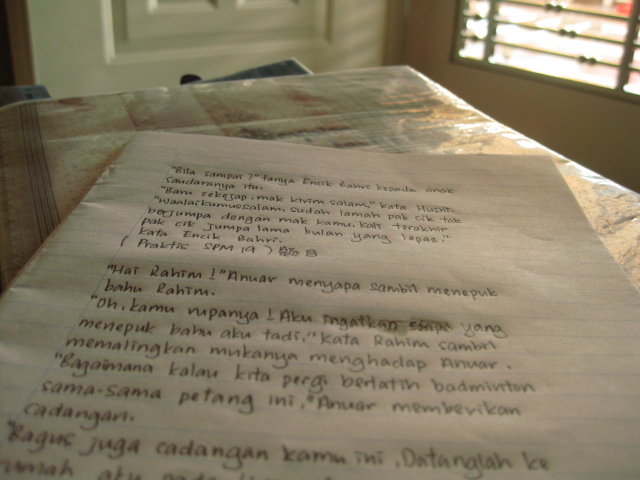 "Bila sampai?" tanya Encik Bahri kepada anak
saudaranya itu.
"Baru sekejap, mak kirim salam," kata Husni.
"Waalaikumussalam, sudah lamah pak cik tak
berjumpa dengan mak kamu. Kali terakhir
pak cik jumpa lama bulan yang lepas,"
kata Encik Bahri.
( Praktis SPM 19 ) 題目
"Hai Rahim!" Anuar menyapa sambil menepuk
bahu Rahim.
"Oh, kamu rupanya! Aku ingatkan siapa yang
menepuk bahu aku tadi," kata Rahim sambil
memalingkan mukanya menghadap Anuar.
"Bagaimana kalau kita pergi berlatih badminton
sama-sama petang ini," Anuar memberikan
cadangan.
"Bagus juga cadangan kamu ini. Datanglah ke
rumah aku pada